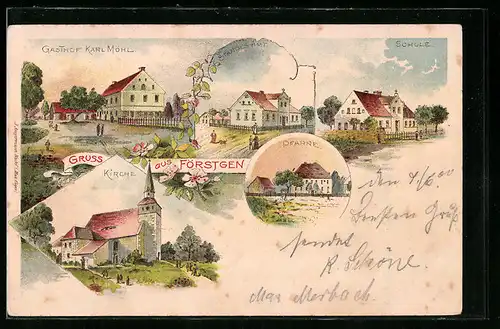 GASTHOF KARL MÖHL.
STANDESAMT
SCHULE
GRUSS AUS FÖRSTGEN
PFARRE
KIRCHE
den 4/6.00
Besten Gruß
sendet
R. Schöne.
Max Merbach